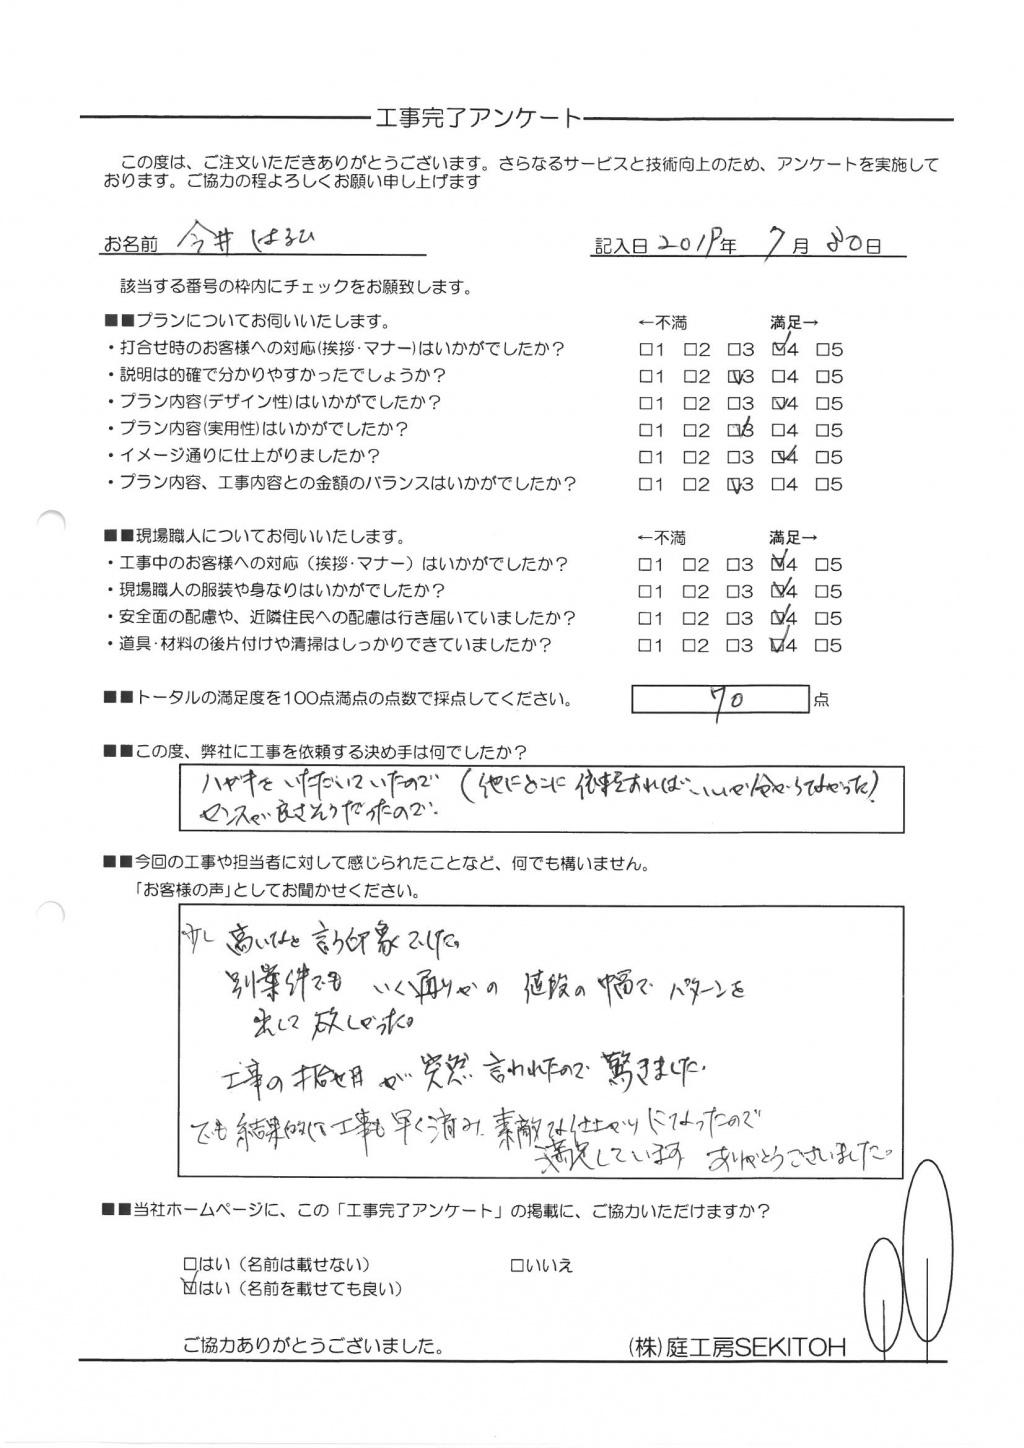 工事完了アンケート
この度は、ご注文いただきありがとうございます。さらなるサービスと技術向上のため、アンケートを実施して
おります。ご協力の程よろしくお願い申し上げます
お名前 今井 はるひ 記入日 2019年 7月 30日
該当する番号の枠内にチェックをお願致します。
■■プランについてお伺いいたします。 ←不満 満足→
・打合せ時のお客様への対応(挨拶・マナー)はいかがでしたか? □1 □2 □3 ☑4 □5
・説明は的確で分かりやすかったでしょうか? □1 □2 ☑3 □4 □5
・プラン内容(デザイン性)はいかがでしたか? □1 □2 □3 ☑4 □5
・プラン内容(実用性)はいかがでしたか? □1 □2 ☑3 □4 □5
・イメージ通りに仕上がりましたか? □1 □2 □3 ☑4 □5
・プラン内容、工事内容との金額のバランスはいかがでしたか? □1 □2 ☑3 □4 □5
■■現場職人についてお伺いいたします。 ←不満 満足→
・工事中のお客様への対応(挨拶・マナー)はいかがでしたか? □1 □2 □3 ☑4 □5
・現場職人の服装や身なりはいかがでしたか? □1 □2 □3 ☑4 □5
・安全面の配慮や、近隣住民への配慮は行き届いていましたか? □1 □2 □3 ☑4 □5
・道具・材料の後片付けや清掃はしっかりできていましたか? □1 □2 □3 ☑4 □5
■■トータルの満足度を100点満点の点数で採点してください。 70 点
■■この度、弊社に工事を依頼する決め手は何でしたか?
ハガキを いただいていたので (他にどこに 依頼すればいいか分からなかった)
センスが良さそうだったので。
■■今回の工事や担当者に対して感じられたことなど、何でも構いません。
「お客様の声」としてお聞かせください。
少し 高いなと 言う印象でした。
別案件でも いく通りかの 値段の 幅で パターンを
出して 欲しかった。
工事の 打合せ日 が 突然 言われたので 驚きました。
でも 結果的に 工事も 早く済み、素敵な仕上がりになったので
満足しています ありがとうございました。
■■当社ホームページに、この「工事完了アンケート」の掲載に、ご協力いただけますか?
□はい(名前は載せない) □いいえ
☑はい(名前を載せても良い)
ご協力ありがとうございました。 (株)庭工房SEKITOH